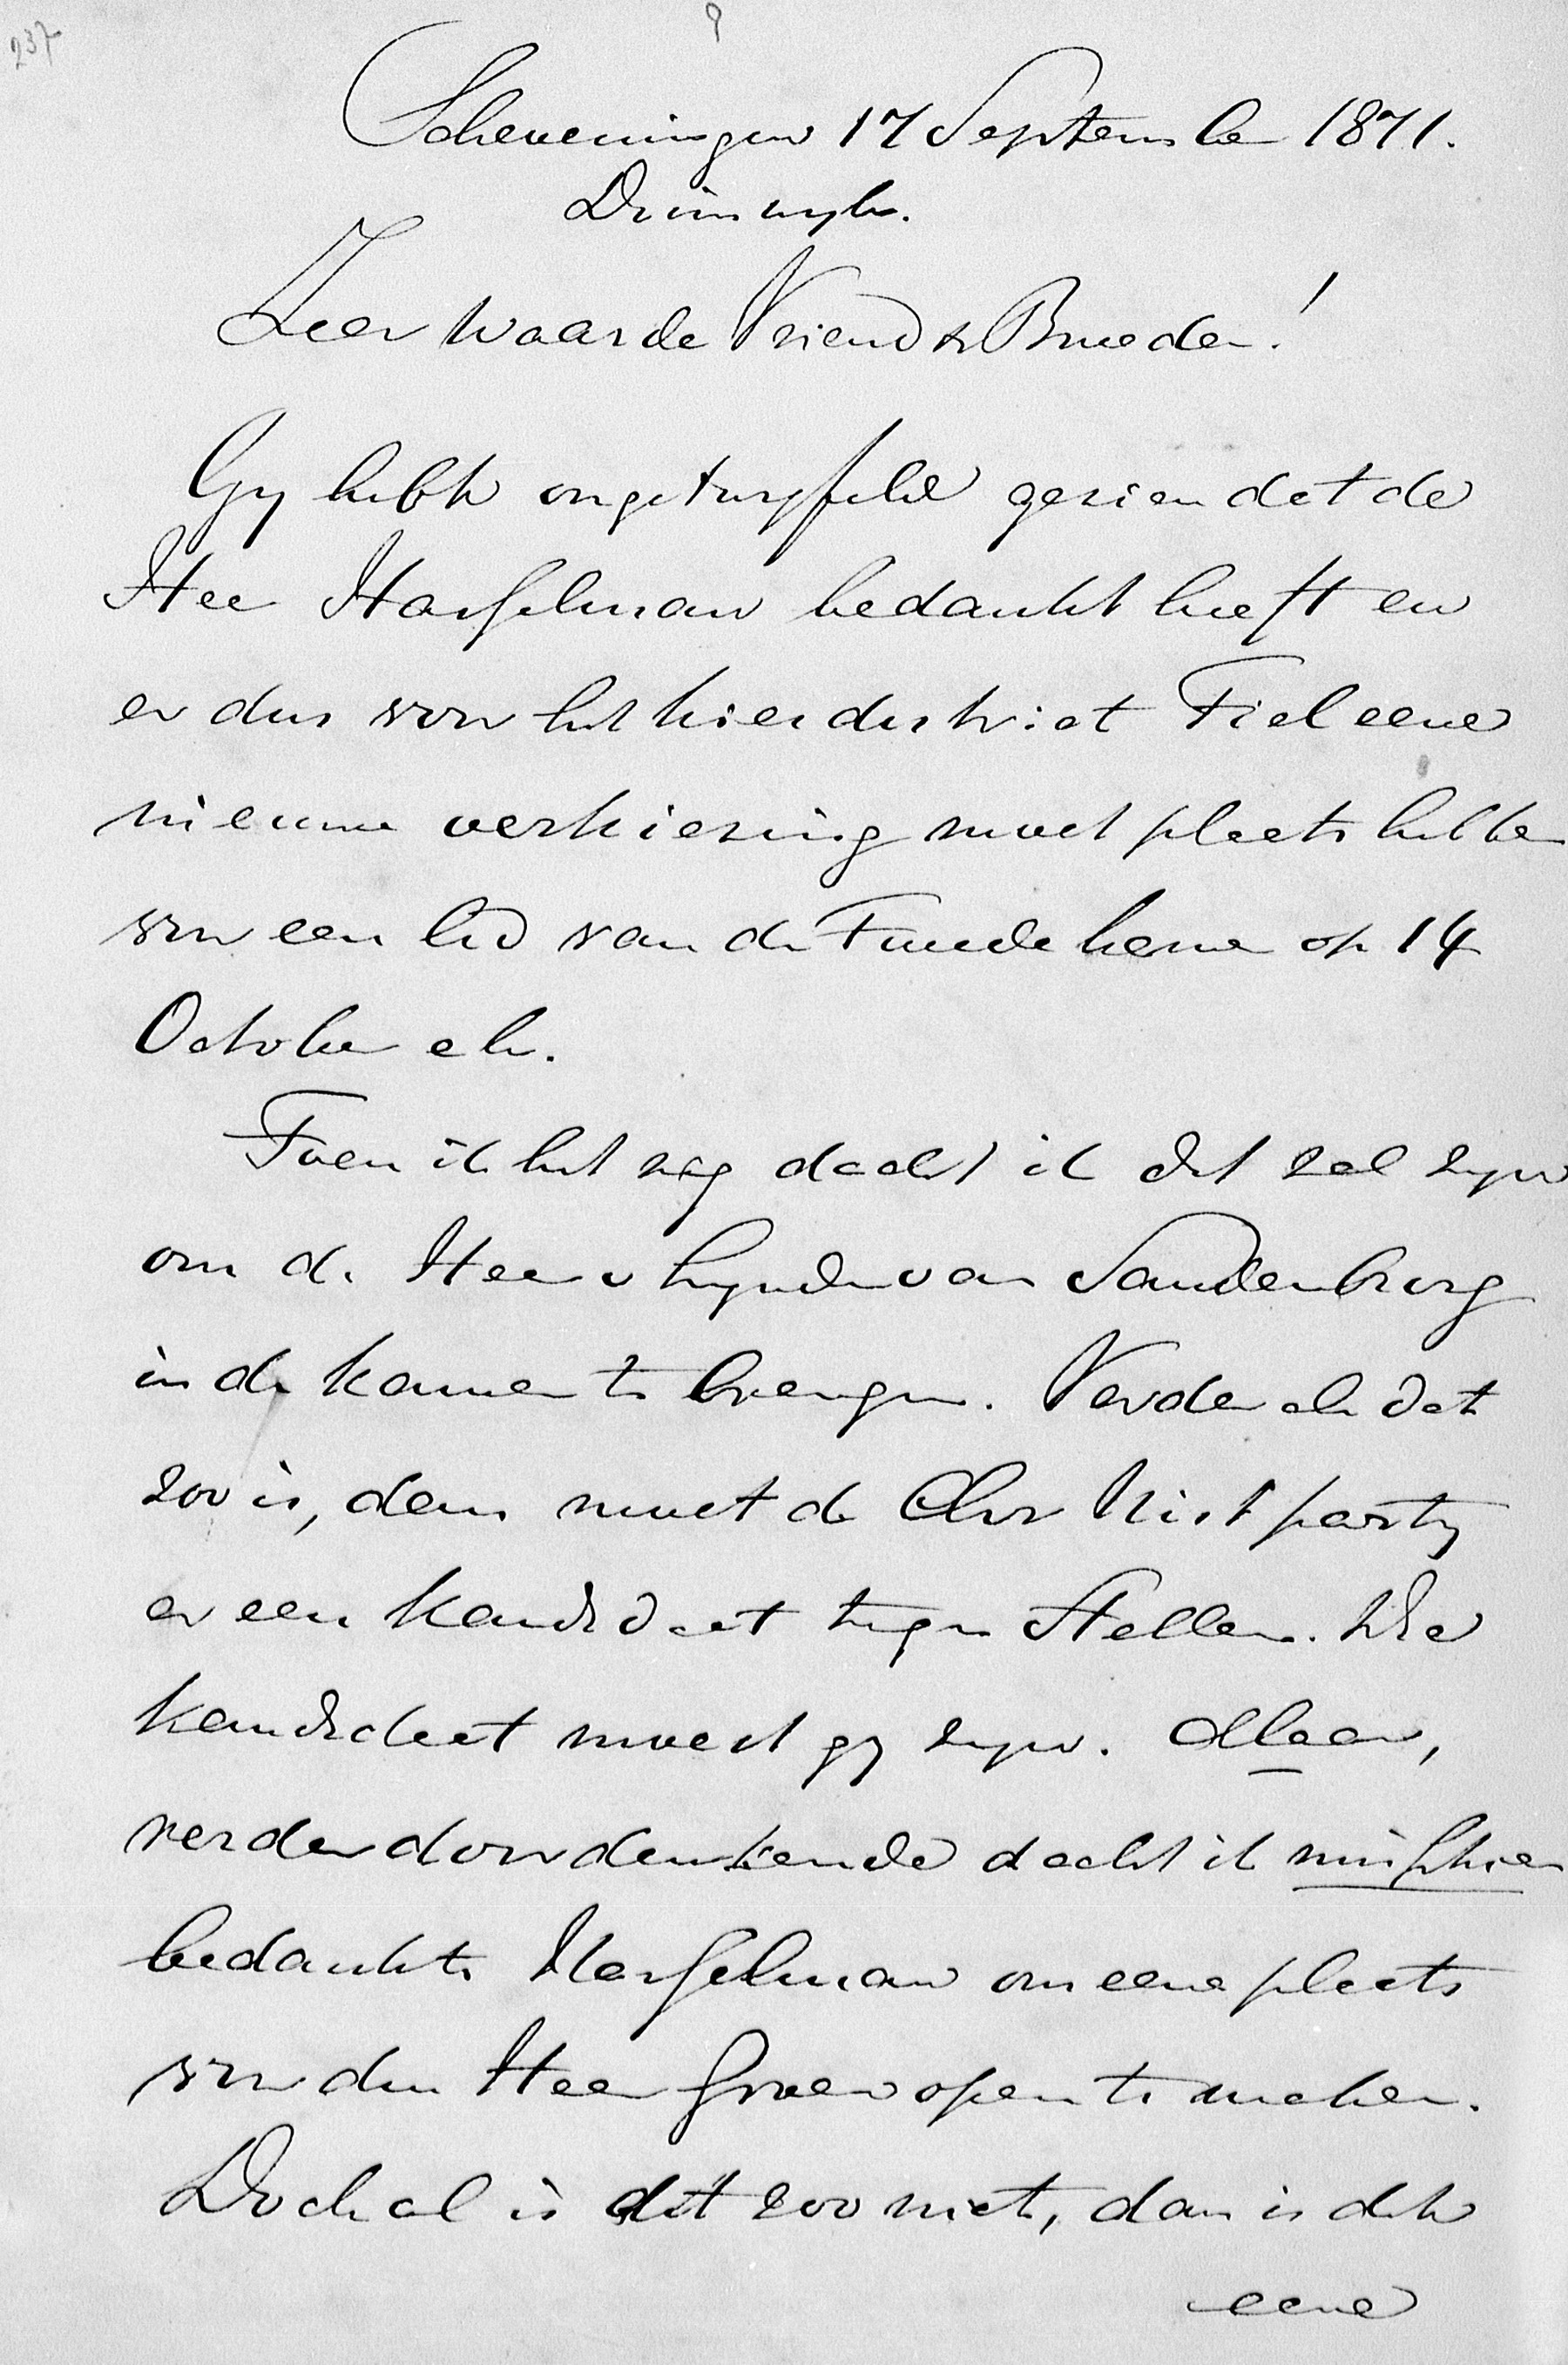 237
9
Scheveningen 17 September 1871.
Duinwyk.
Zeer Waarde Vriend & Broeder!
Gy hebt ongetwyfeld gezien dat de
Heer Hasselman bedankt heeft en
er dus voor het kiesdistrict Tiel eene
nieuwe verkiezing moet plaats hebben
voor een lid van de Tweede kamer op 14
October ek.
Toen ik het zag dacht ik dit zal zyn
om de Heer v Lynden van Sandenburg
in de kamer te brengen. Verder als dat
zoo is, dan moet de Chr Hist party
er een kandidaat tegen stellen. Die
kandidaat moest gy zyn. Maar,
verder doordenkende dacht ik misschien
bedankte Hasselman om eene plaats
voor den Heer Groen open te maken.
Doch al is dit zoo niet, dan is dit
eene